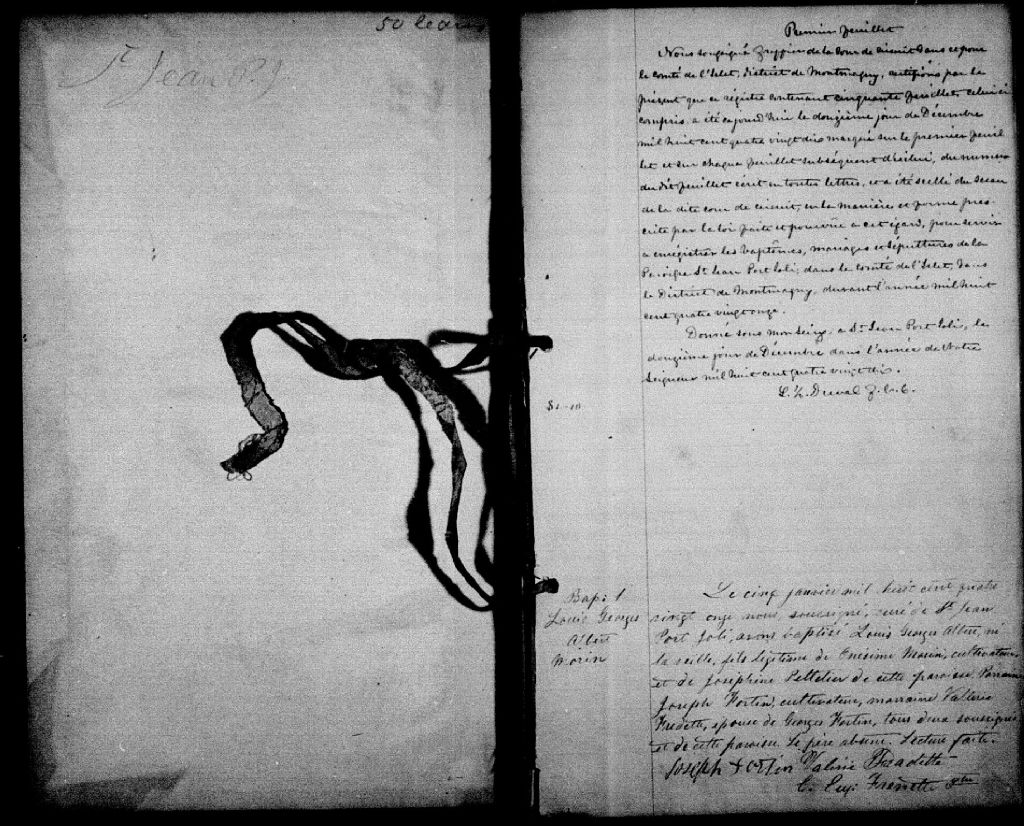 50 
St Jean P. J
Premier feuillet
Nous soussigné Greffier de la Cour de circuit dans et pour
le comté de l'Islet, district de Montmagny, certifions par le
présent que ce régistre contenant cinquante feuillets, celui ci
compris, a été ce jourd'hui le douzième jour de Décembre
mil huit cent quatre vingt dix marqué sur le premier feuil
let et sur chaque feuillet subséquent d'icelui, du numero
du dit feuillet écrit en toutes lettres, et a été scellé du sceau
de la dite cour de circuit, en la manière et forme pres
crite par la loi faite et pourvue a cet égard, pour servir
a enrégistrer les baptêmes, mariages et sépultures de la
Paroisse St Jean Port Joli, dans le comté de l'Islet, dans
le District de Montmagny, durant l'année mil huit
cent quatre vingt onze.
Donné sous mon seing a St Jean Port Joli, le
douzième jour de Décembre dans l'année de Notre
Seigneur mil huit cent quatre vingt dix.
Duval G. C. C.
Bap: 1
Louis Georges
Albert
Morin
Le cinq janvier mil huit cent quatre
vingt onze nous, soussigné, curé de St Jean
Port Joli, avons baptisé Louis Georges Albert, né
la veille, fils légitime de Onésime Morin, cultivateur
et de Joséphine Pelletier de cette paroisse. Parrain
Joseph Fortin, cultivateur, marraine Vallerie
Fredette, épouse de Georges Fortin, tous deux soussignés
et de cette paroisse. Le père absent. Lecture faite.
Joseph Fortin Valérie Fradette
C. Eug. Frenette Ptre